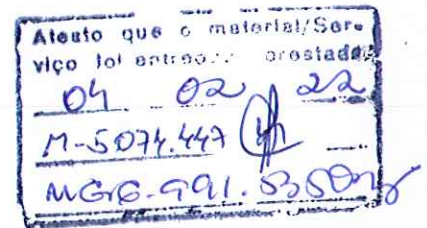 Atesto que o material/Ser-
viço foi entregue prestado
04 02 22
M-5074.447
MG-6.991.535